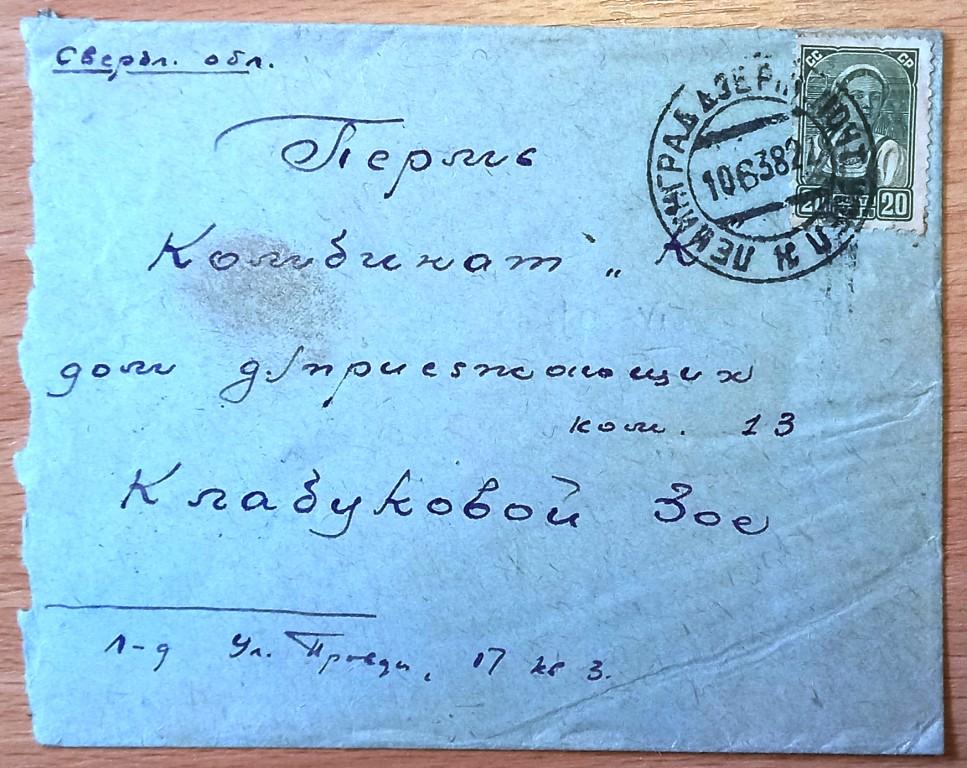 Свердл. обл.
Пермь
Комбинат „К
дом д/приезжающих
ком. 13
Клабуковой Зое
Л-д Ул. Правды, 17 кв 3.
ЛЕНИНГРАД
1063821
СС СР
20 20